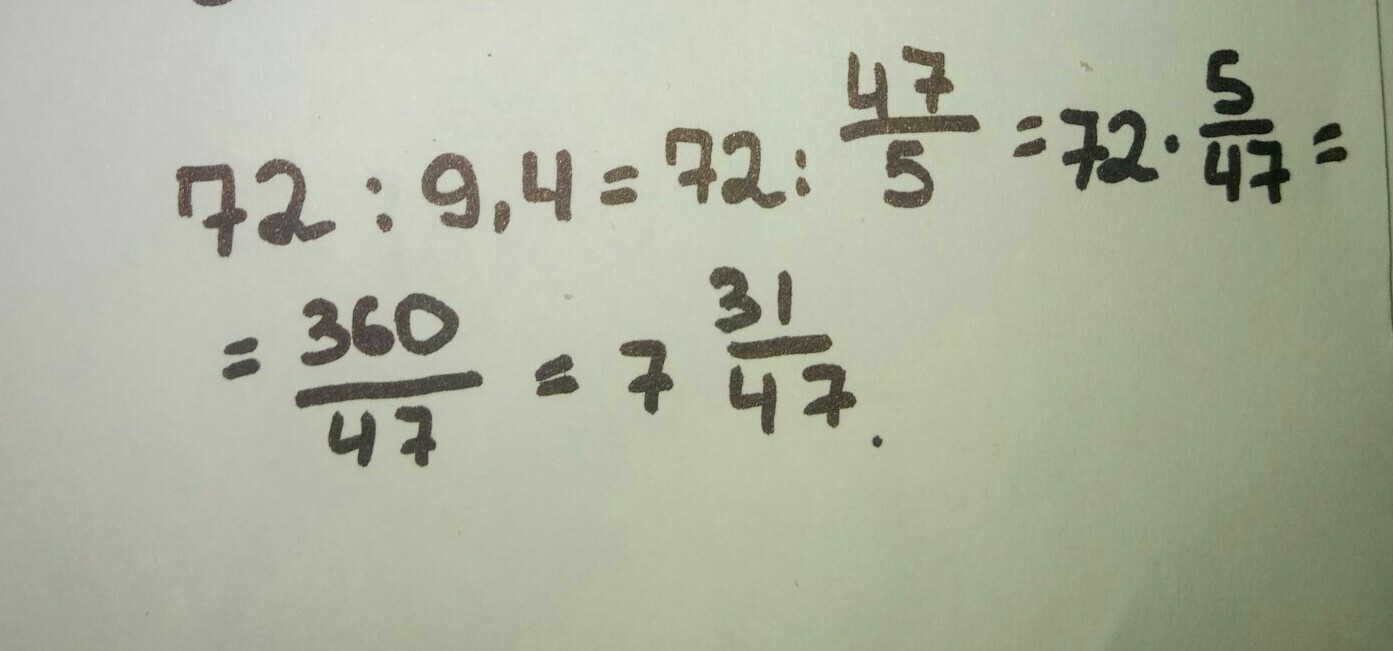 72 : 9,4 = 72 : 47/5 = 72 · 5/47 =
= 360/47 = 7 31/47.